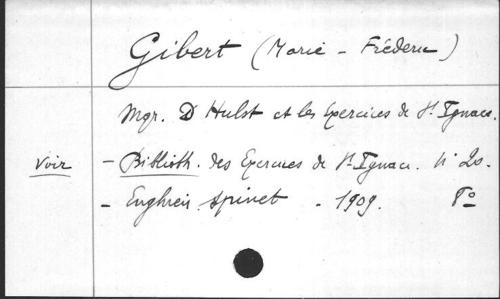 Gibert (Marie - Fréderic)
Mgr. D Hulst et les Exercices de St Ignace.
Voir - Biblioth. des Exercices de St Ignace. N° 20.
- Enghien. Spinet. - 1909. 8°